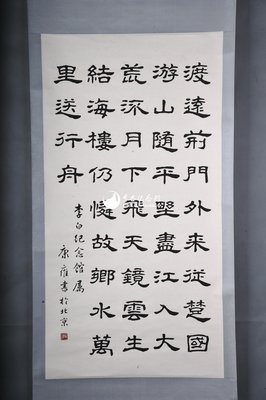 渡遠荊門外来從楚國
游山隨平埜盡江入大
荒流月下飛天鏡雲生
結海樓仍憐故鄉水萬
里送行舟
李白纪念館屬
康雍書於北京